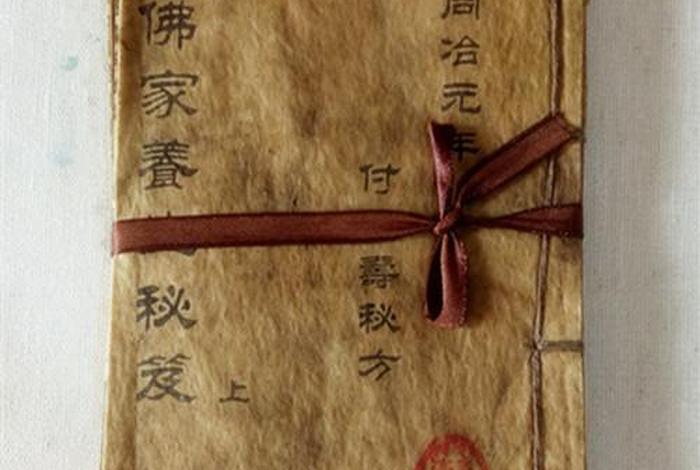 同治元年
付壽秘方
佛家養秘笈
上